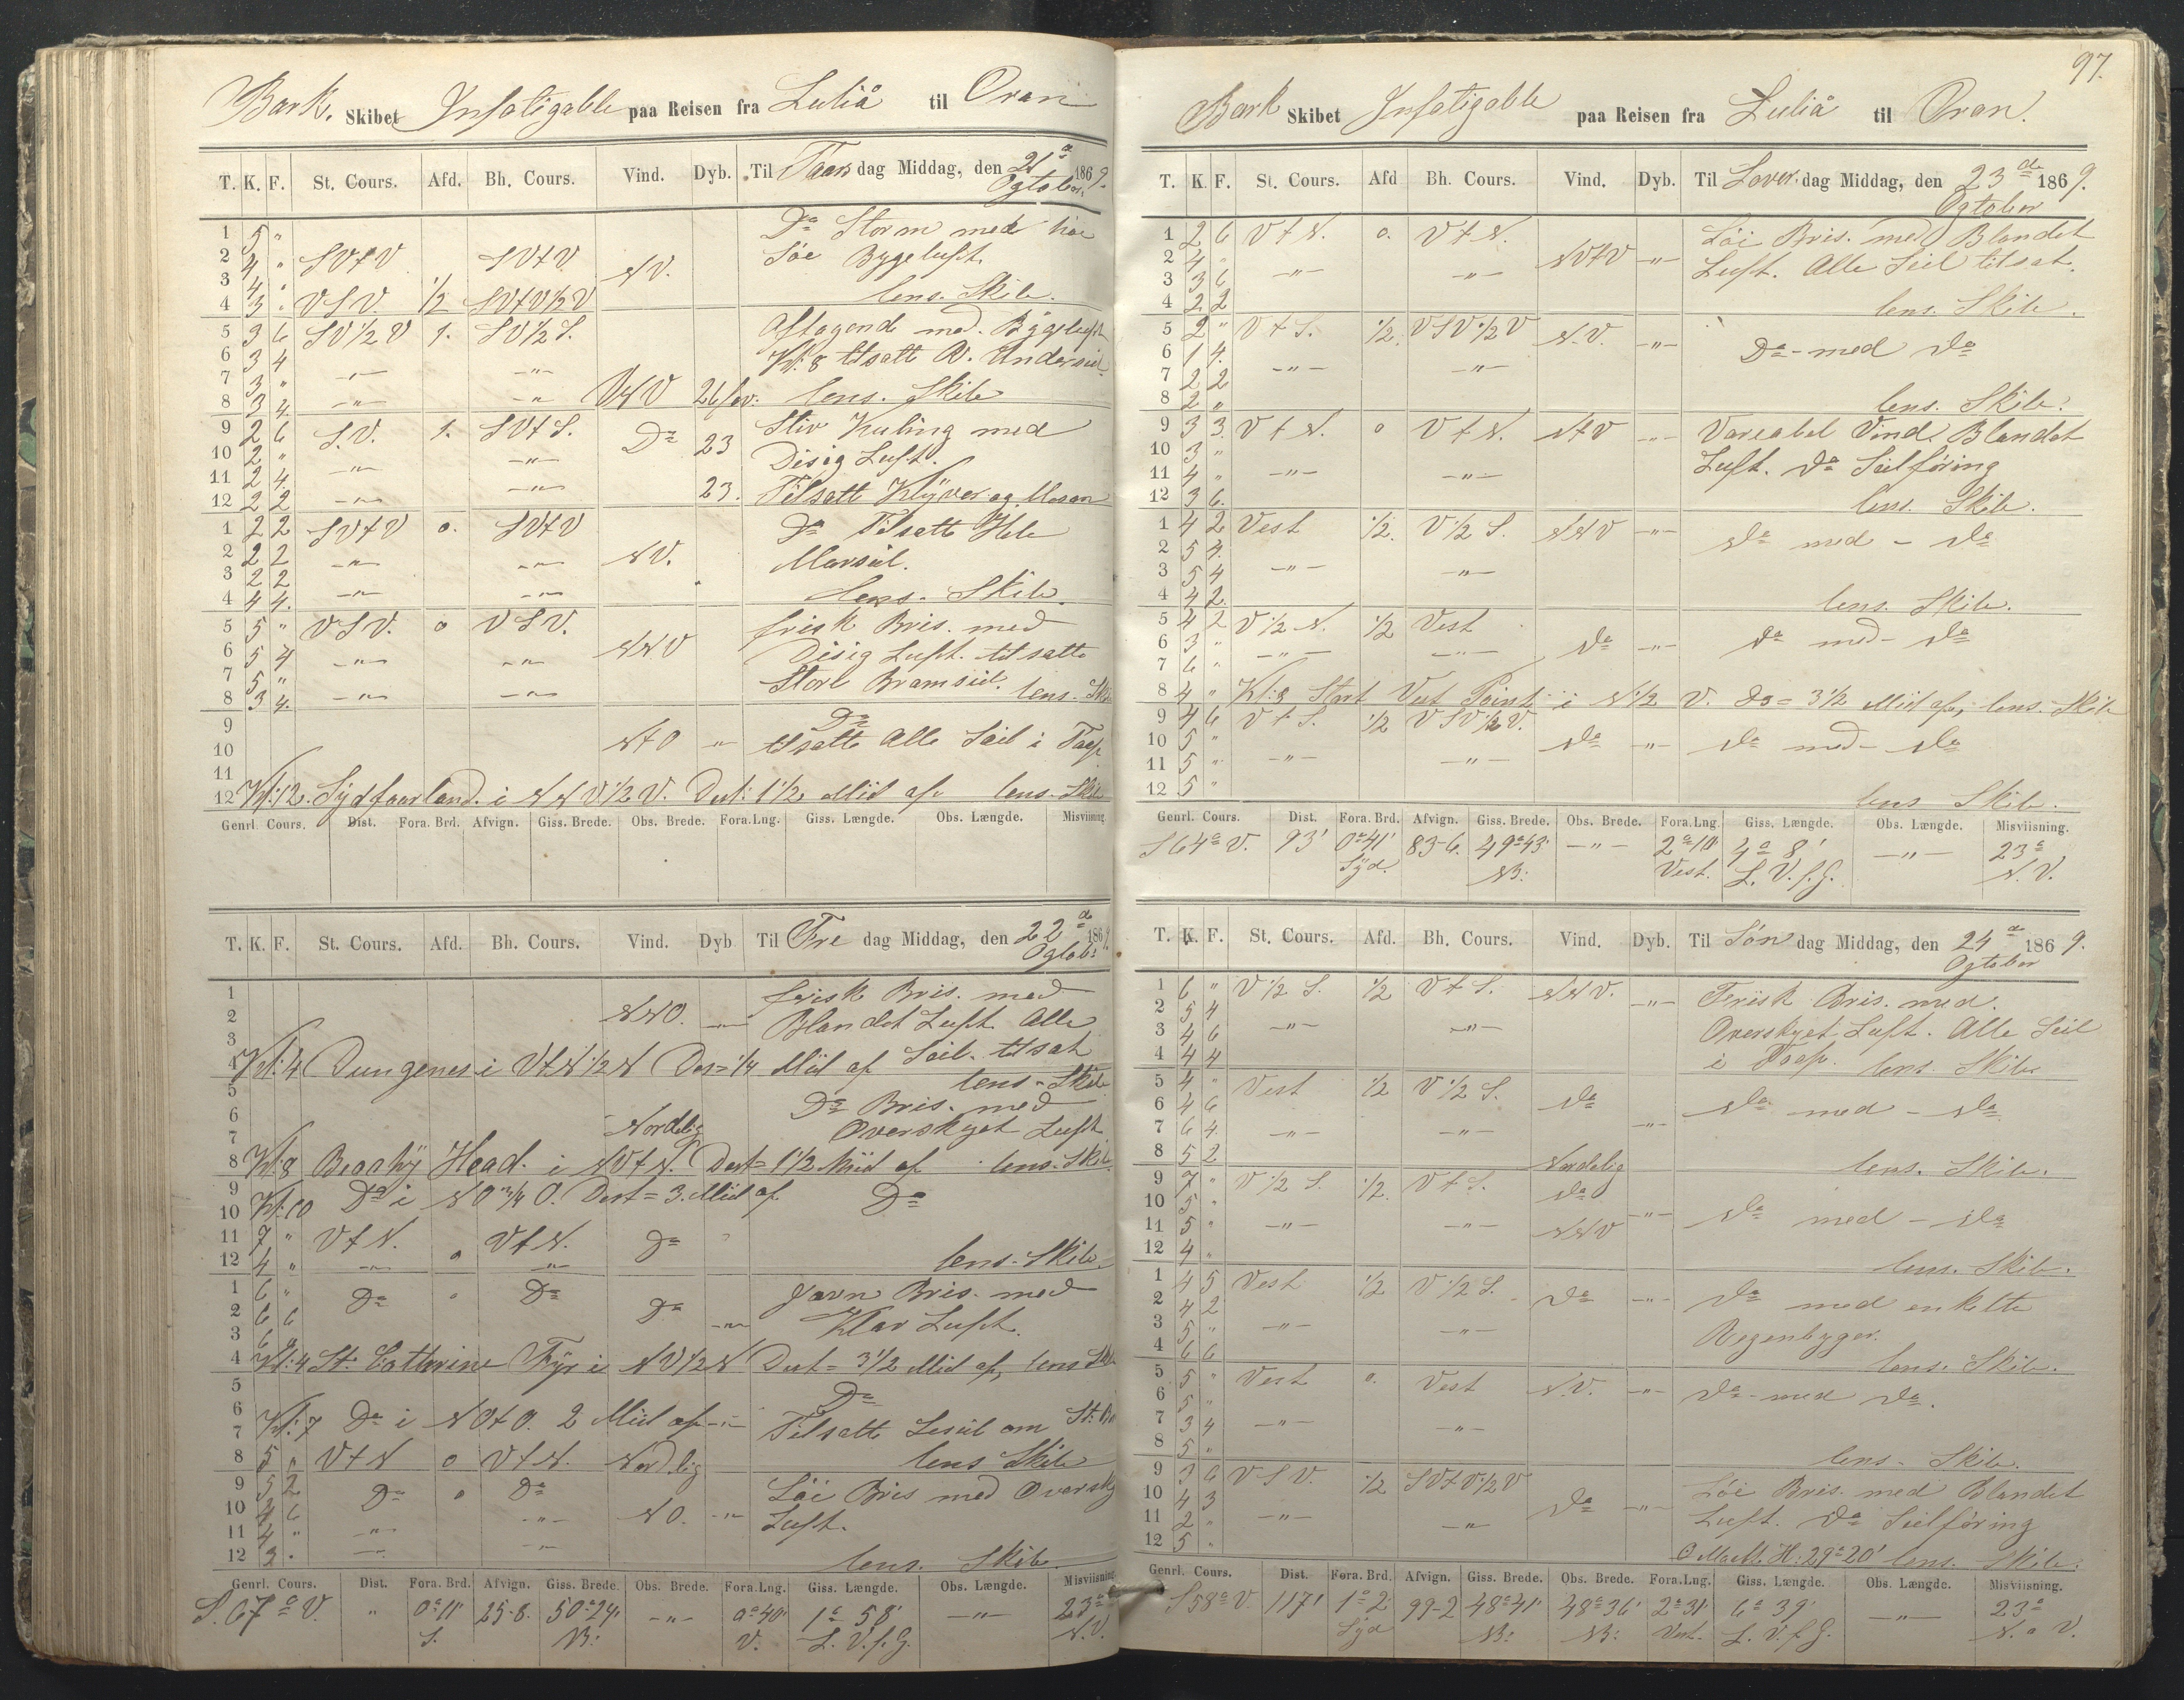 Bark. Skibet Infatigable paa Reisen fra Luliå til Oran
T. K. F. St. Cours. Afd. Bh. Cours. Vind. Dyb. Til Tors dag Middag, den 21de Ogtober 1869.
1 5 " Do Storm med høi
2 4 " SVtV SVtV NV. Søe Bygeluft.
3 4 "
4 3 " VSV. 1/2 SVtV1/2V lens. Skib.
5 3 6 SV1/2V 1. SV1/2S. Aftagende med Bygeluft
6 3 4 -"- -"- Kl: 8 tilsatt
7 3 "
8 3 4 -"- -"- VNV 26 fav. lens. Skib
9 2 6 S.V. 1. SVtS. Do 23 Stiv Kuling med
10 2 " -"- -"- Disig Luft.
11 2 4
12 2 2 -"- -"- 23. Tilsatt Klyver og Mesan
1 2 2 SVtV 0. SVtV Do Tilsatte Hele
2 2 2 -"- -"- NV. Marseil.
3 2 2
4 4 4. -"- -"- lens. Skib.
5 5 " VSV. 0 VSV. frisk Bris. med
6 5 4 -"- -"- NNV Disig Luft. tilsatte
7 5 " Store Bramseil.
8 3 4. -"- -"- lens. Skib
9 Do
10 NtO " tilsatte Alle Seil i Taap.
11
12 Kl: 12. Sydfoorland. i NNV1/2V. Dist: 1 1/2 Miil af. lens. Skib
Genrl. Cours. Dist. Fora. Brd. Afvign. Giss. Brede. Obs. Brede. Fora. Lng. Giss. Længde. Obs. Længde. Misviisning.
T. K. F. St. Cours. Afd. Bh. Cours. Vind. Dyb Til Fre dag Middag, den 22de Ogtobr 1869.
1 frisk Bris. med
2 NNO. -"- Blandet Luft. Alle
3 Seil. tilsat
4 Kl: 4 Dungenes i VtN1/2N Des= 1/4 Miil af lens. Skib
5 Do Bris. med
6 Nordelig Overskyet Luft
7
8 Kl: 8 Beachy Head. i NVtN. Dest= 1 1/2 Miil af lens. Skib.
9
10 Kl: 10 Do i NO 3/4 O. Dest= 3. Miil af. Do
11 7 " VtN. 0 VtN. Do "
12 4 " -"- -"- lens. Skib.
1 6 " Do " Do Do Javn Bris. med
2 6 6 -"- Klar Luft.
3 6 "
4 Kl: 4 St. Catterine Fyr i NV1/2N Dest= 3 1/2 Miil af, lens Skib
5 Do
6
7 Kl: 7 Do i NOtO. 2 Miil af -"- Tilsatte Leseil om St: B
8 5 " VtN 0 VtN. Nordlig lens Skib
9 5 2 Do 0 Do Løi Bris med Oversky
10 4 6 -"- NO. -"- Luft.
11 4 " -"-
12 3 " -"- -"- lens. Skib.
Genrl. Cours. Dist. Fora. Brd. Afvign. Giss. Brede. Obs. Brede. Fora. Lng. Giss. Længde. Obs. Længde. Misviisning
S. 67° V. " 0°11' 25-8. 50°24' -"- 0°40' 1° 58' -"- 23°
S. NB: V. L. V. f. G. N.V.
97.
Bark Skibet Infatigable paa Reisen fra Luliå til Oran.
T. K. F. St. Cours. Afd Bh. Cours. Vind. Dyb. Til Løver. dag Middag, den 23de Ogtober 1869.
1 2 6 VtN. 0. VtN. Løi Bris. med Blandet
2 4 " -"- -"- NVtV -"- Luft. Alle Seil tilsat.
3 3 6
4 2 2 lens. Skib.
5 2 " VtS. 1/2. VSV1/2V N.V. -"- Do - med Do
6 1 4.
7 2 2 -"- -"-
8 2 " lens. Skib.
9 3 3. VtN. 0 VtN. NtV -"- Vareabel Vind. Blandet
10 3 " Luft. Do Seilføring
11 4 " -"- -"-
12 3 6. lens. Skib.
1 4 2 Vest 1/2. V1/2S. NNV -"- Do med - Do
2 5 4.
3 5 4 -"- -"-
4 4 2. lens. Skib.
5 4 2 V1/2N. 1/2 Vest
6 3 " -"- -"- Do -"- Do med - Do
7 6 "
8 4 " Kl: 8 Start Vest Point i N1/2 V. Ds= 3 1/2 Miil af, lens. Skib
9 4 6 VtS. 1/2 VSV1/2V.
10 5 " Do -"- Do med - Do
11 5 " -"- -"-
12 5 " lens Skib.
Genrl. Cours. Dist. Fora. Brd. Afvign. Giss. Brede. Obs. Brede. Fora. Lng. Giss. Længde. Obs. Længde. Misviisning.
S64° V. 93' 0°41' 83-6. 49°43' -"- 2°10' 4° 8' -"- 23°
Syd. NB: Vest. L. V. f. G. N. V.
T. K. F. St. Cours. Afd. Bh. Cours. Vind. Dyb. Til Søn dag Middag, den 24de Ogtober 1869.
1 6 " V1/2S. 1/2 VtS. NNV. -"- Feriisk Bris. med.
2 5 4
3 4 6 -"- -"- Overskyet Luft. Alle Seil
4 4 4 i Taap. lens. Skib.
5 4 " Vest 1/2 V1/2S. Do
6 4 6 -"- Do med - Do
7 6 4. -"- -"-
8 5 2 Nordelig lens. Skib.
9 7 " V1/2S. 1/2. VtS. Do
10 5 " -"- Do med - Do
11 5 " -"- -"- NNV
12 4 " lens. Skib.
1 4 5 Vest 1/2 V1/2S. Do -"- Do med enkelte
2 4 2
3 5 " -"- -"- Regenbyger.
4 6 6 lens. Skib.
5 5 " Vest 0. Vest N.V. -"- Do - med Do.
6 5 "
7 3 4 -"- -"-
8 5 " lens. Skib.
9 3 6 VSV. 1/2 SVtV1/2V Løi Bris. med Blandet
10 4 3 Do -"-
11 2 " -"- -"- Luft. Do Seilføring
12 5 " H: 29°20' lens. Skib.
Genrl. Cours. Dist. Fora. Brd. Afvign. Giss. Brede. Obs. Brede. Fora. Lng. Giss. Længde. Obs. Længde. Misviisning.
S58° V. 117' 1° 2' 99-2 48°41' 48°36' 2°31' 6° 39' -"- 23°
Syd NB: NB: Vest. L. V. f. G. N. V.